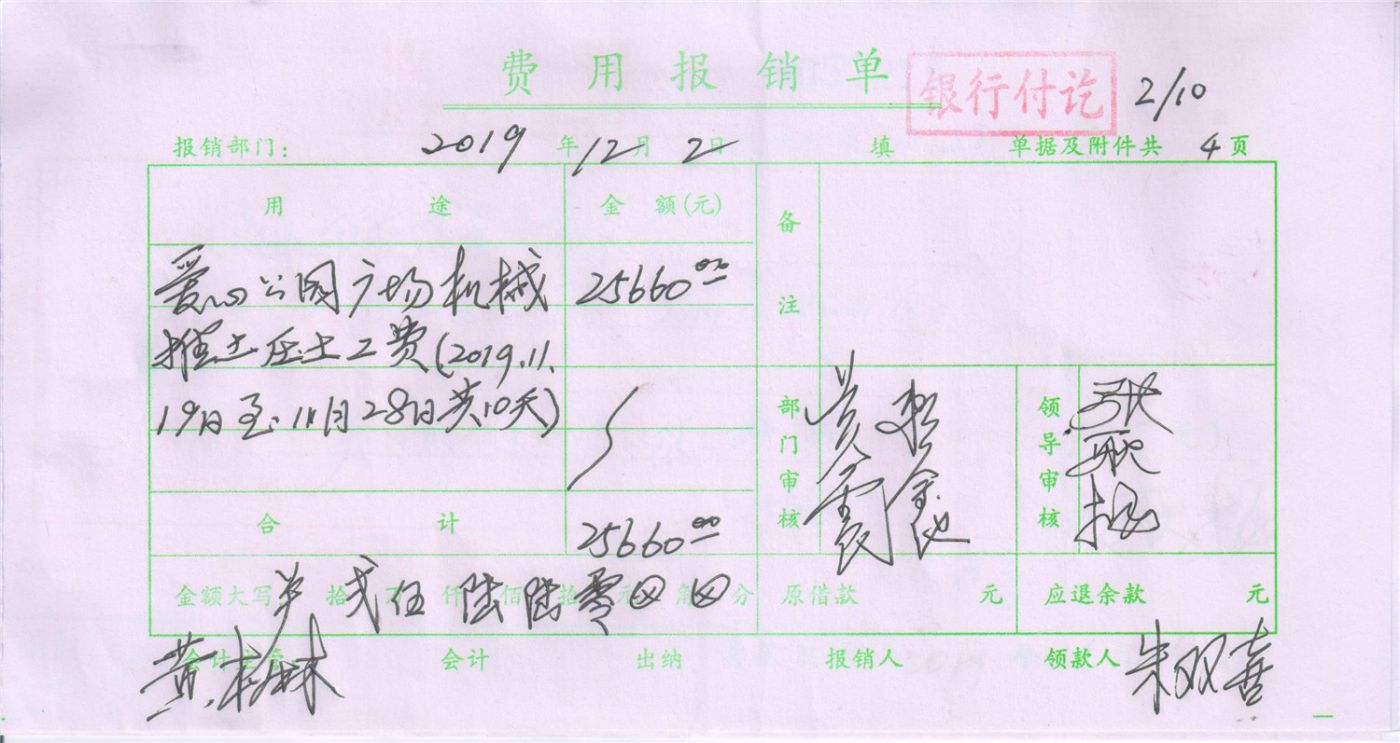 费用报销单
银行付讫
2/10
报销部门: 2019年12月2日 填 单据及附件共4页
用途 金额(元) 备注
爱心公园广场机械 25660.00
推土压土工费(2019.11.
19日至11月28日共10天)
部门审核 领导审核
合计 25660.00
金额大写 拾 贰万 伍仟 陆佰 陆拾 零元 角 分 原借款 元 应退余款 元
会计主管 会计 出纳 报销人 领款人 朱双喜